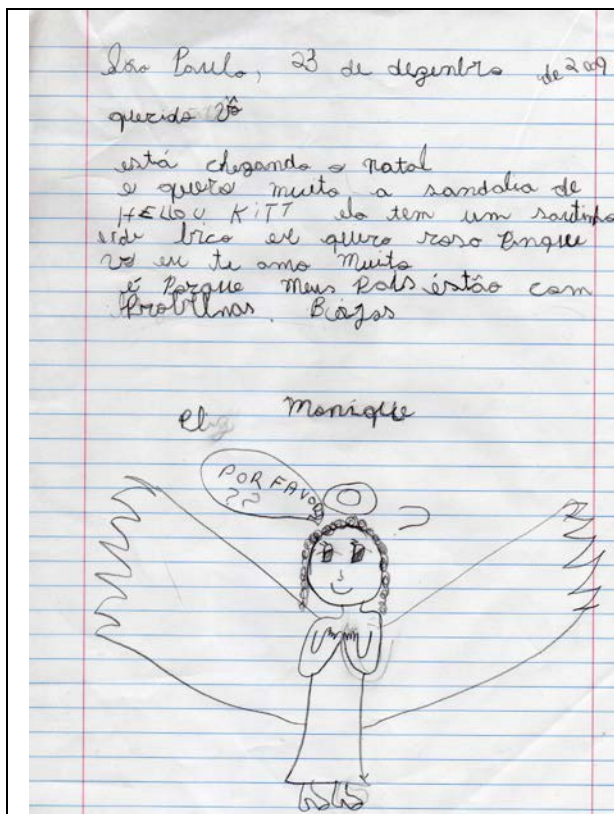 São Paulo, 23 de dezenbro de 2009
querido vô
está chegando o natal
e quero muito a sandalia de
HELLOU KITT ela tem um saltinho
de bico eu quero rosa pinque
vô eu te amo muito
é Porque meus Pais éstão com
Problemas. Biejos
Monique
POR FAVOR
??